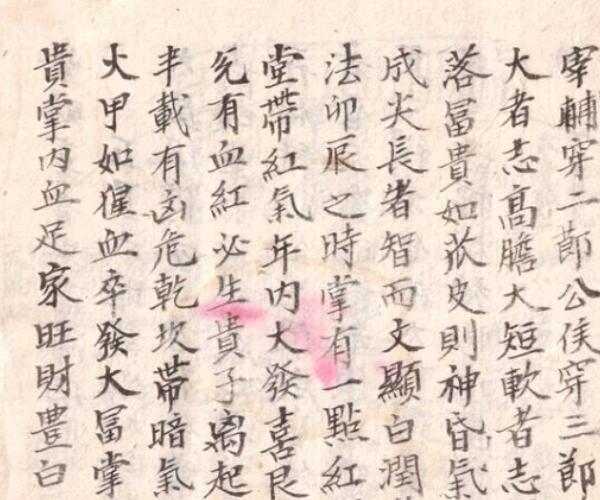 宰輔穿二節公侯穿三節
大者志高膽大短軟者志
落冨貴如菰皮則神昏氣
成尖長者智而文顯白潤
法卯辰之時掌有一點紅
堂帶紅氣年内大發喜艮
兂有血紅必生貴子离起
半載有凶危乾坎帶暗氣
大甲如猩血卒發大冨掌
貴掌内血足家旺財豊白